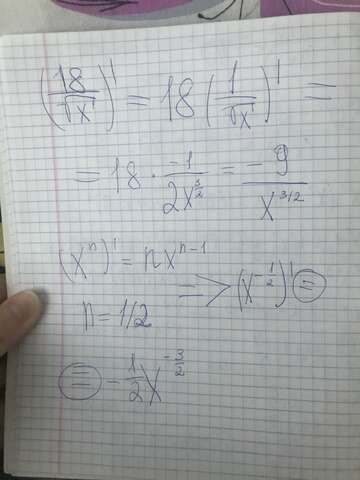 (18/√x)' = 18(1/√x)' =
= 18 · -1/2x^(3/2) = -9/x^(3/2)
(x^n)' = nx^(n-1)
n = 1/2 => (x^(-1/2))' =
= -1/2 x^(-3/2)